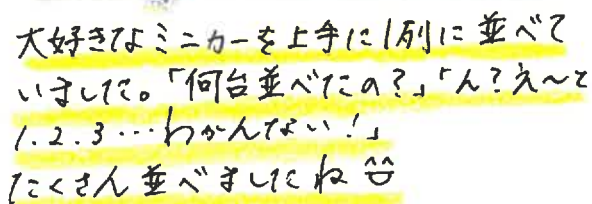 大好きなミニカーを上手に1列に並べて
いました。「何台並べたの?」「ん?え〜と
1.2.3…わかんない!」
たくさん並べましたね